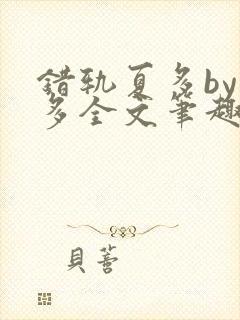 錯軌夏多by
多全文筆趣
貝蕾